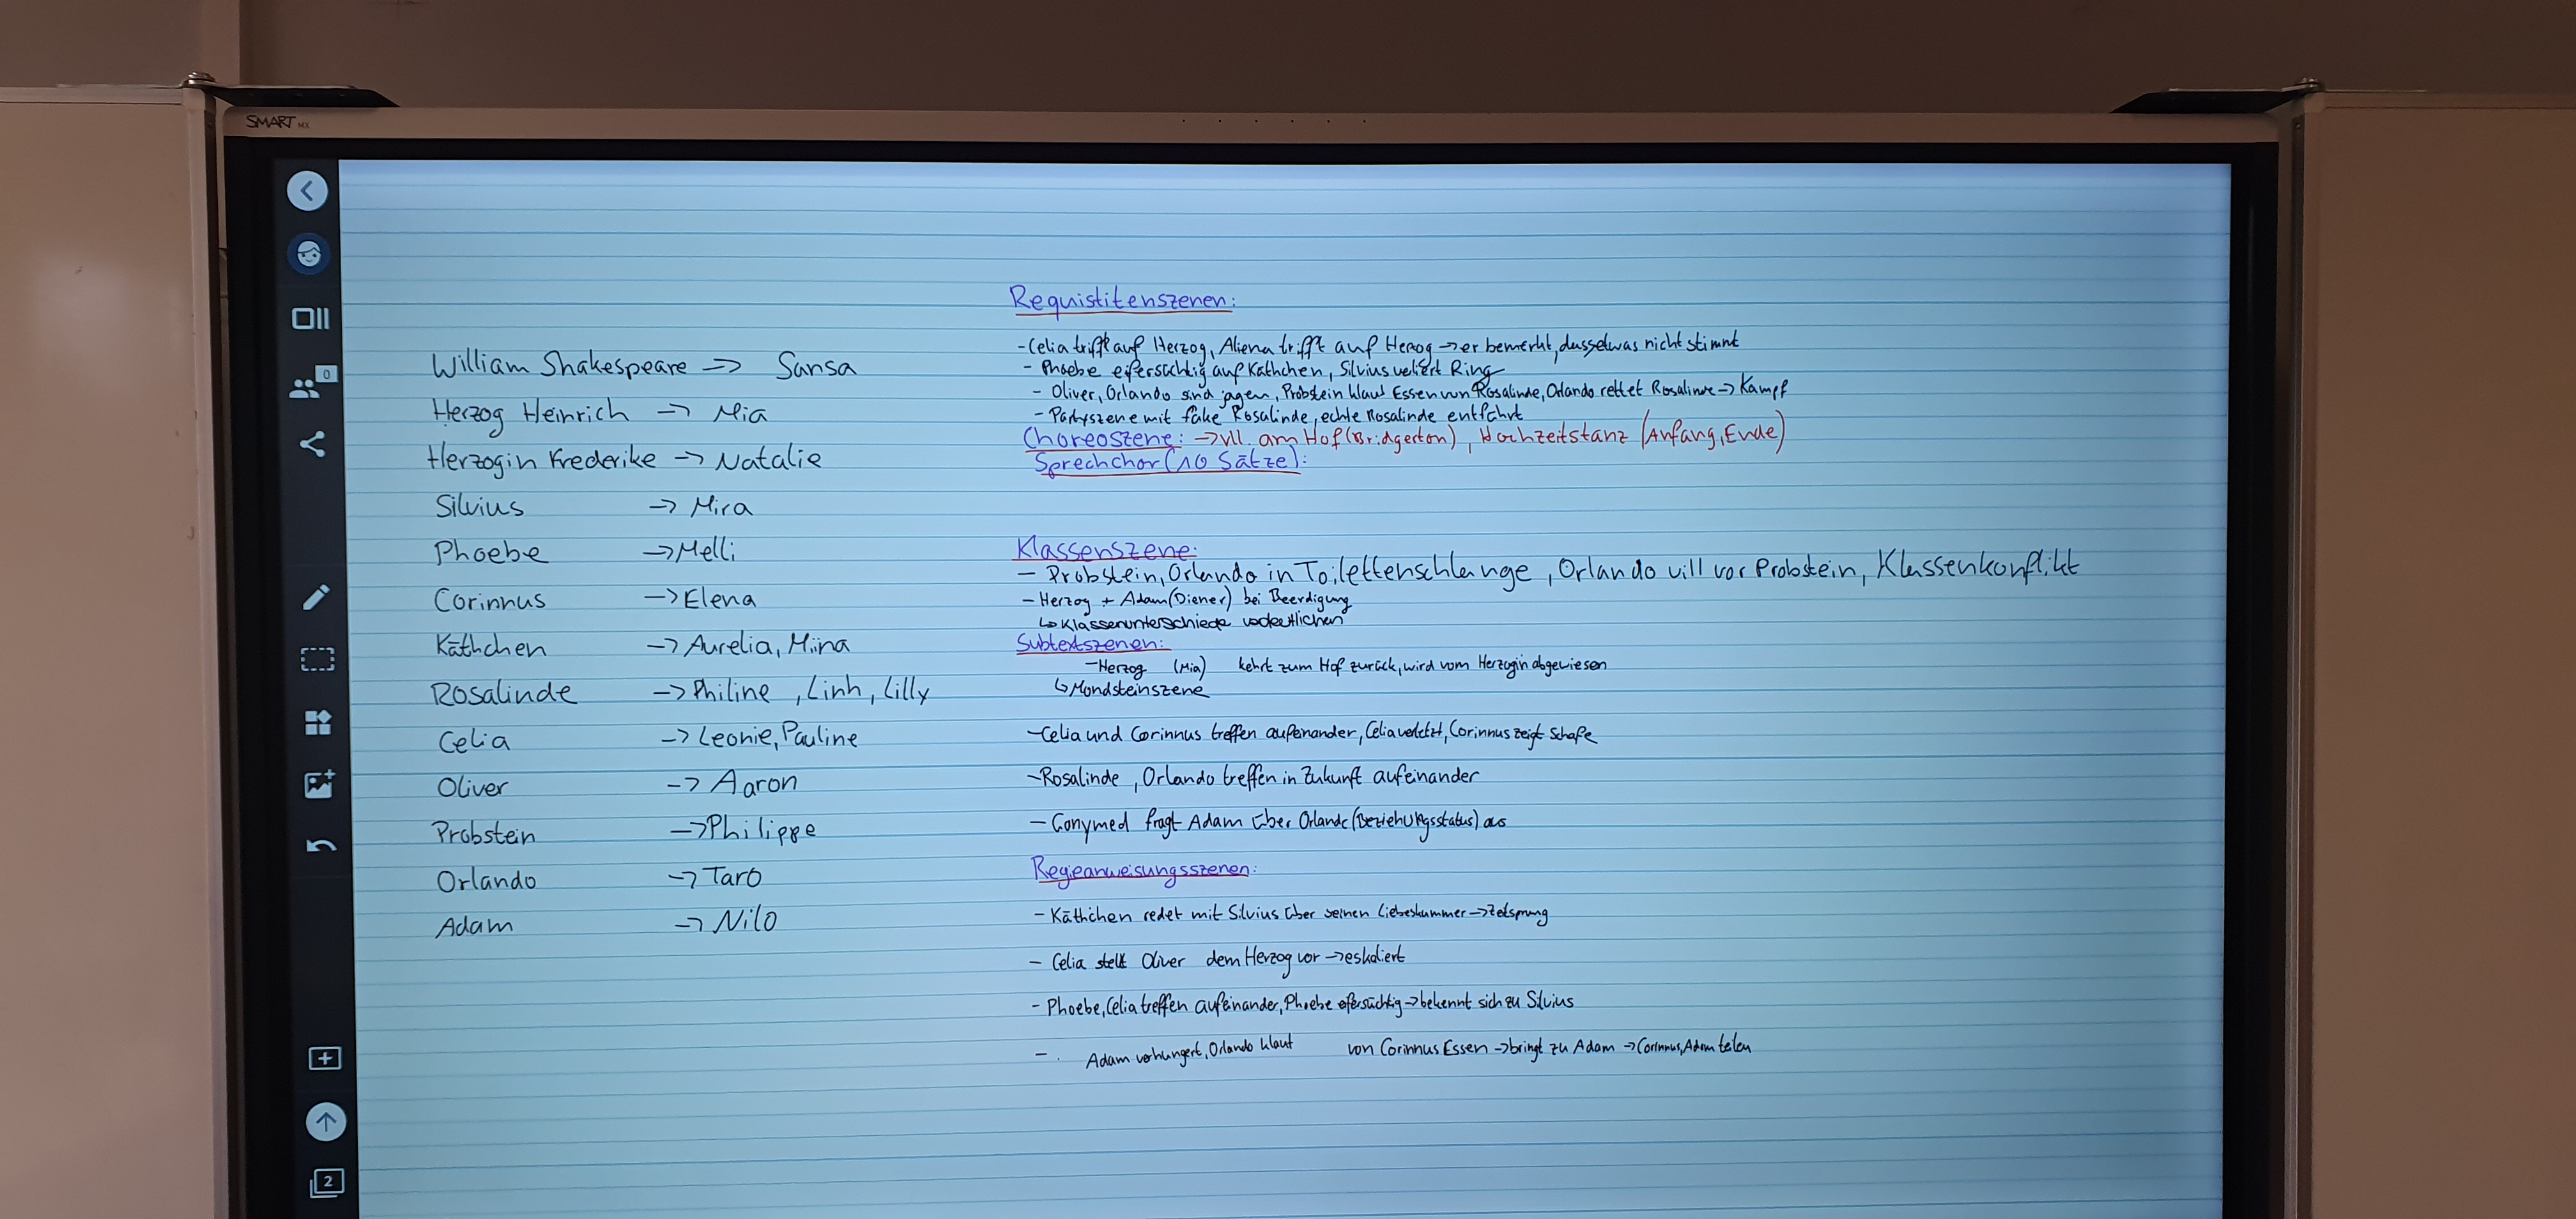 SMART MX
0
William Shakespeare -> Sansa
Herzog Heinrich -> Mia
Herzogin Frederike -> Natalie
Silvius -> Mira
Phoebe -> Melli
Corinnus -> Elena
Käthchen -> Aurelia, Mina
Rosalinde -> Philine, Linh, Lilly
Celia -> Leonie, Pauline
Oliver -> Aaron
Probstein -> Philippe
Orlando -> Taro
Adam -> Nilo
Requistitenszenen:
- Celia trifft auf Herzog, Aliena trifft auf Herzog -> er bemerkt, dass etwas nicht stimmt
- Phoebe eifersüchtig auf Käthchen, Silvius verliert Ring
- Oliver, Orlando sind jagen, Probstein klaut Essen von Rosalinde, Orlando rettet Rosalinde -> Kampf
- Partyszene mit fake Rosalinde, echte Rosalinde entführt
Choreoszene: -> vll. am Hof (Bridgerton), Hochzeitstanz (Anfang, Ende)
Sprechchor (10 Sätze):
Klassenszene:
- Probstein, Orlando in Toilettenschlange, Orlando will vor Probstein, Klassenkonflikt
- Herzog + Adam (Diener) bei Beerdigung
↳ Klassenunterschiede
Subtextszenen:
- Herzog (Mia) kehrt zum Hof zurück, wird vom Herzogin abgewiesen
↳ Mondsteinszene
- Celia und Corinnus treffen aufeinander, Celia verletzt, Corinnus zeigt Schafe
- Rosalinde, Orlando treffen in Zukunft aufeinander
- Ganymed fragt Adam über Orlando (Beziehungsstatus) aus
Regieanweisungsszenen:
- Käthchen redet mit Silvius über seinen Liebeskummer -> Zeitsprung
- Celia stellt Oliver dem Herzog vor -> eskaliert
- Phoebe, Celia treffen aufeinander, Phoebe eifersüchtig -> bekennt sich zu Silvius
- Adam verhungert, Orlando klaut von Corinnus Essen -> bringt zu Adam -> Corinnus, Adam teilen
2